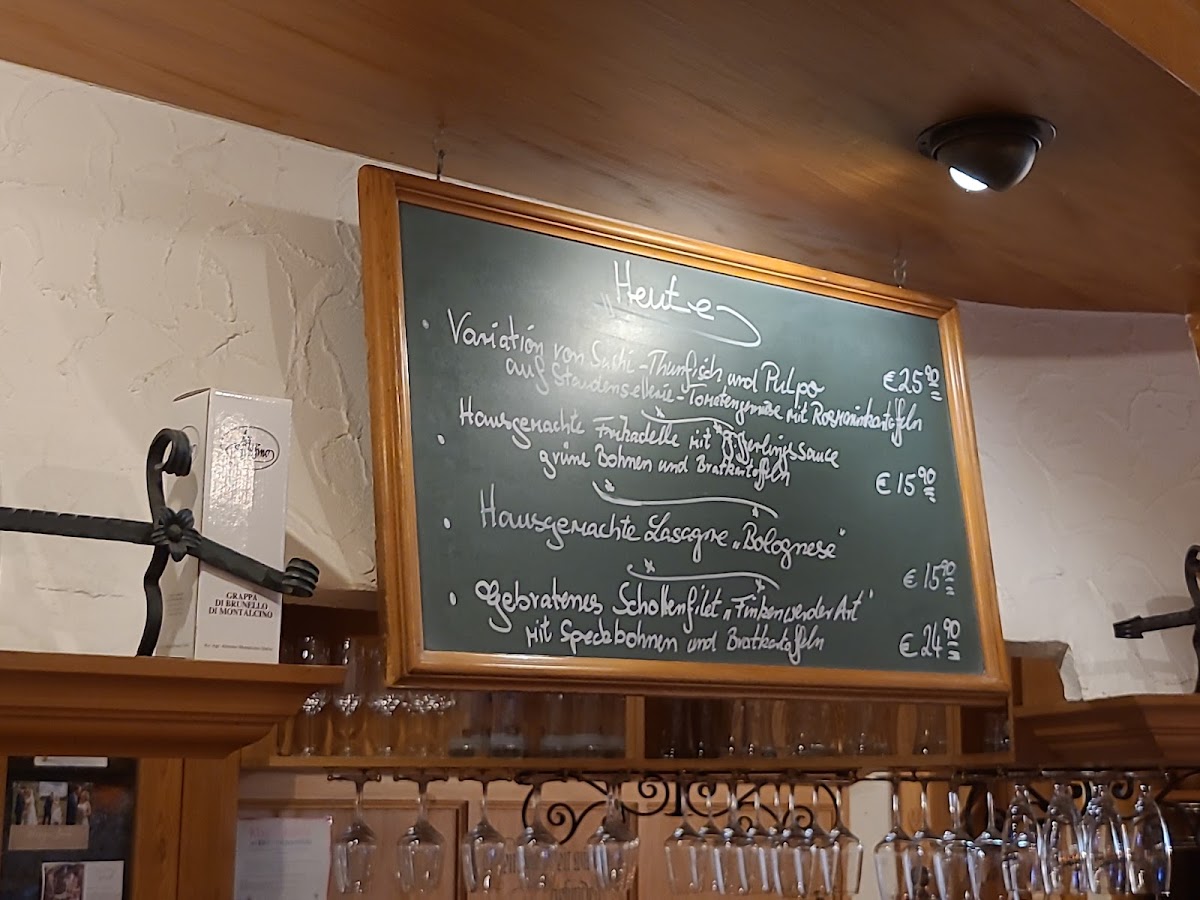 Heute
• Variation von Sushi-Thunfisch und Pulpo
auf Staudensellerie-Tomatengemüse mit Rosmarinkartoffeln
€ 25.90
• Hausgemachte Frikadelle mit Pfifferlingssauce
grüne Bohnen und Bratkartoffeln
€ 15.90
• Hausgemachte Lasagne „Bolognese"
€ 15.90
• Gebratenes Schollenfilet „Finkenwerder Art"
mit Speckbohnen und Bratkartoffeln
€ 24.90
GRAPPA
DI BRUNELLO
DI MONTALCINO